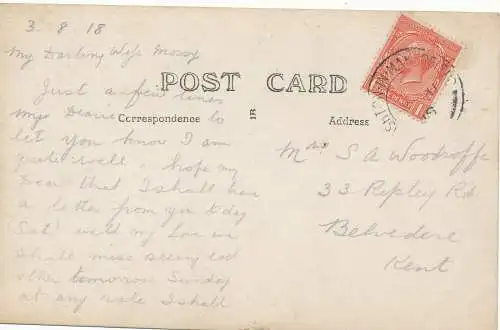 3. 8. 18
My Darling Wife Mossy
POST CARD
Just a few lines
my Dearie to
Correspondence
1B
Address
let you know I am
quite well. hope my
Dear that I shall has
a letter from you to day
(Sat) well my Love we
shall miss seeing each
other tomorrow Sunday
at any rate I shall
Mrs S A Woodroffe
33 Ripley Rd
Belvedere
Kent